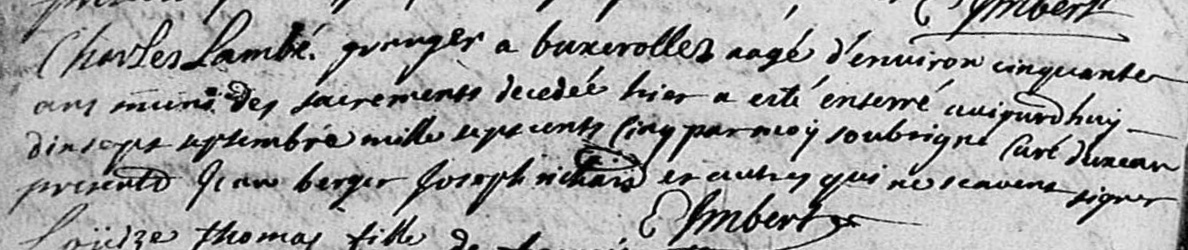 Imbert
Charles Lambé. granger a buxerolles aagé d'environ cinquante
ans muni des sacrements decedée hier a esté enserré aujourdhuy
dixsept septembre mille sept cents cinq par moy soubsigne Curé
presents Jean berger Joseph et autres qui ne scavent signer
Imbert
Loüize thomas fille de